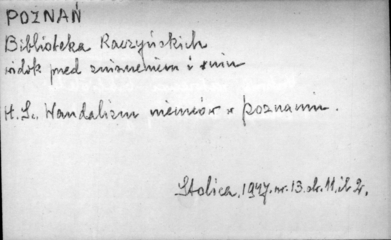 POZNAŃ
Biblioteka Raczyńskich
widok przed zniszczeniem i ruin
H. S. Wandalizm niemców w Poznaniu.
Stolica, 1947. nr. 13. str. 11, il. 2.